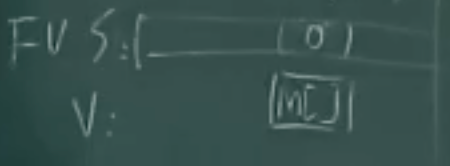 FVS:
0
V:
M[]